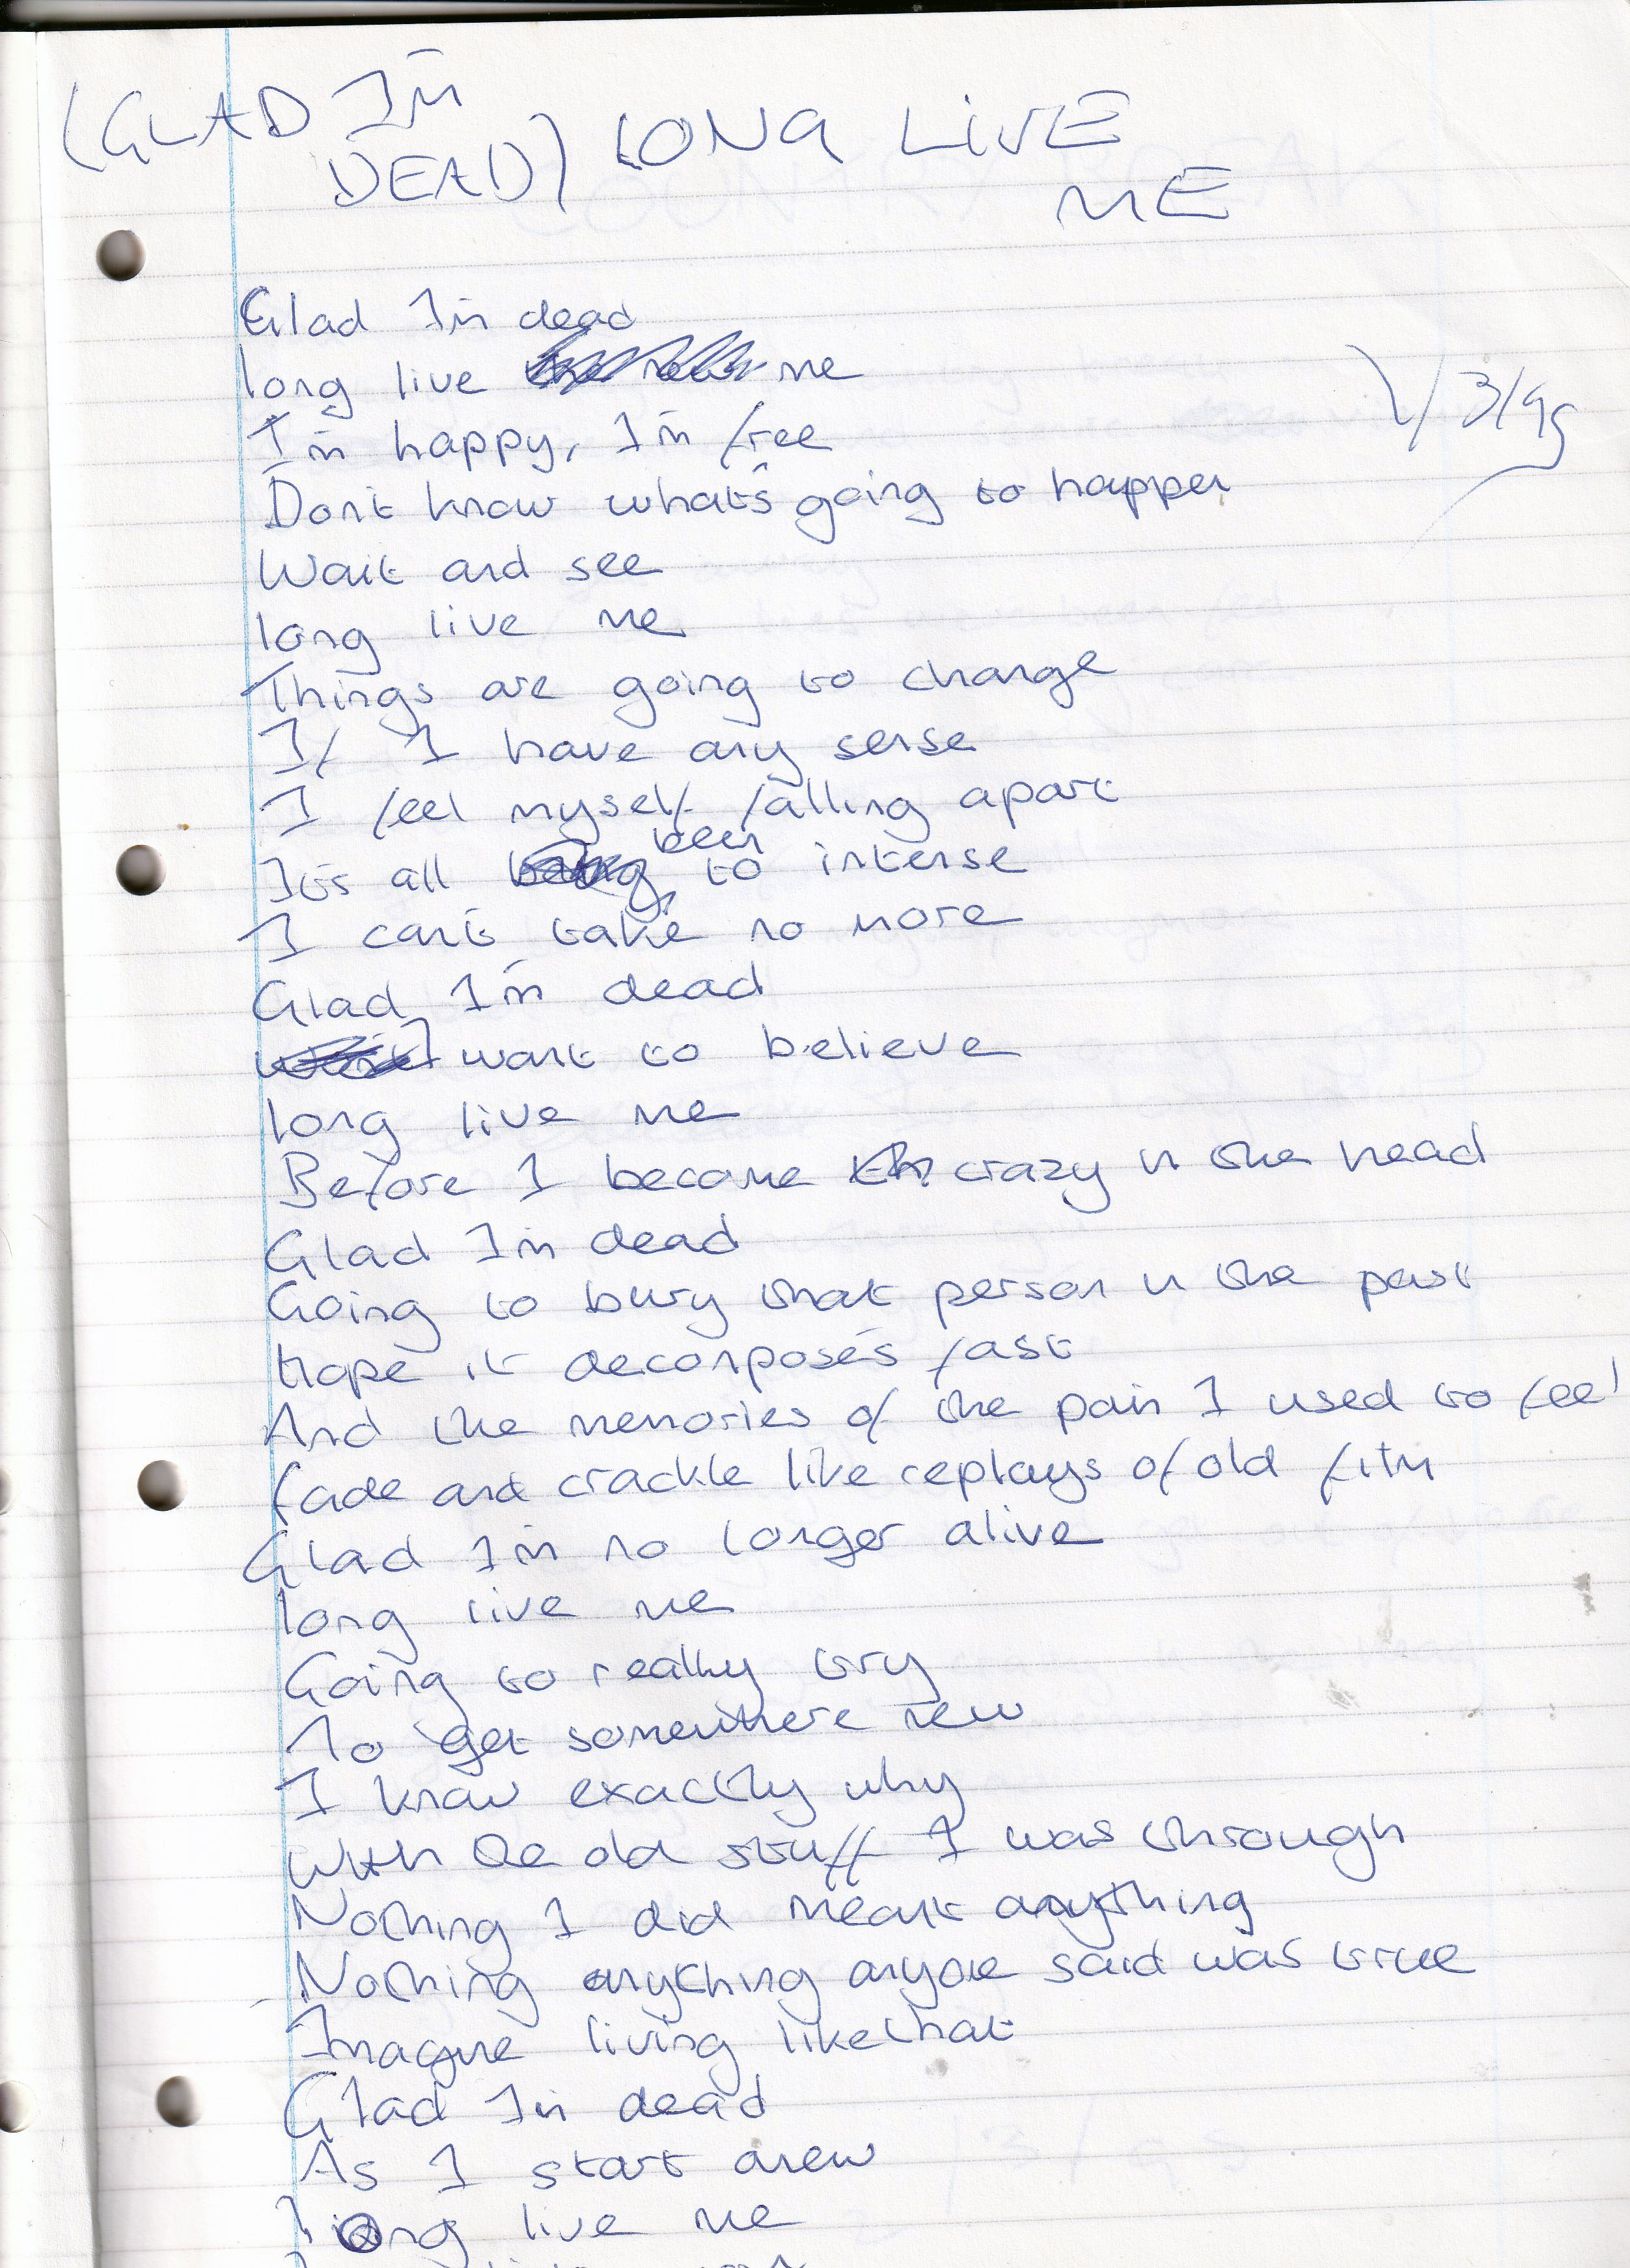 (GLAD I'm
DEAD) LONG LIVE
ME
Glad I'm dead
long live me
1/3/95
I'm happy, I'm free
Don't know what's going to happen
Wait and see
long live me
Things are going to change
If I have any sense
I feel myself falling apart
It's all been to intense
I can't take no more
Glad I'm dead
I want to believe
long live me
Before I become crazy in the head
Glad I'm dead
Going to bury that person in the past
Hope it decomposes fast
And the memories of the pain I used to feel
fade and crackle like replays of old film
Glad I'm no longer alive
long live me
Going to really try
To get somewhere new
I know exactly why
With the old stuff I was through
Nothing I did meant anything
Nothing anything anyone said was true
Imagine living like that
Glad I'm dead
As I start anew
long live me